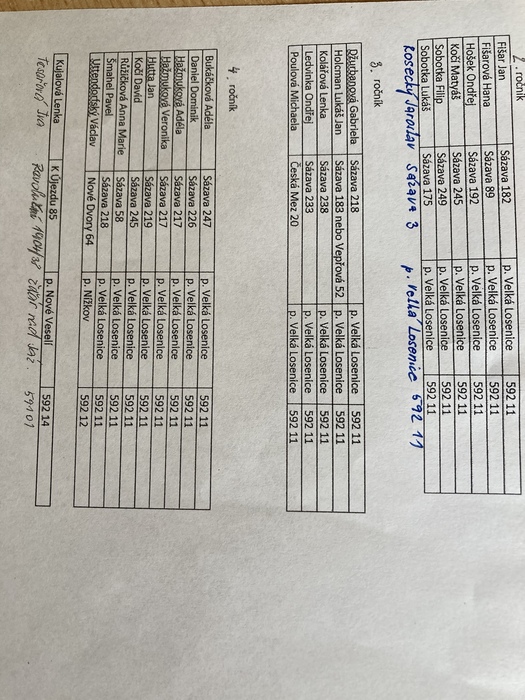 2. ročník
Fišar Jan Sázava 182 p. Velká Losenice 592 11
Fišarová Hana Sázava 89 p. Velká Losenice 592 11
Hošek Ondřej Sázava 192 p. Velká Losenice 592 11
Kočí Matyáš Sázava 245 p. Velká Losenice 592 11
Sobotka Filip Sázava 249 p. Velká Losenice 592 11
Sobotka Lukáš Sázava 175 p. Velká Losenice 592 11
Rosecký Jaroslav Sázava 3 p. Velká Losenice 592 11
3. ročník
Džurbanová Gabriela Sázava 218 p. Velká Losenice 592 11
Holcman Lukáš Jan Sázava 183 nebo Vepřová 52 p. Velká Losenice 592 11
Kolářová Lenka Sázava 238 p. Velká Losenice 592 11
Ledvinka Ondřej Sázava 233 p. Velká Losenice 592 11
Poulová Michaela Česká Mez 20 p. Velká Losenice 592 11
4. ročník
Bukáčková Adéla Sázava 247 p. Velká Losenice 592 11
Daniel Dominik Sázava 226 p. Velká Losenice 592 11
Hažmuková Adéla Sázava 217 p. Velká Losenice 592 11
Hažmuková Veronika Sázava 217 p. Velká Losenice 592 11
Hutta Jan Sázava 219 p. Velká Losenice 592 11
Kočí David Sázava 245 p. Velká Losenice 592 11
Růžičková Anna Marie Sázava 58 p. Velká Losenice 592 11
Šmahel Pavel Sázava 218 p. Velká Losenice 592 11
Uttendorfský Václav Nové Dvory 64 p. Nížkov 592 12
Kujalová Lenka K Újezdu 85 p. Nové Veselí 592 14
Iva 1904/38 Žďár nad Sáz. 59101